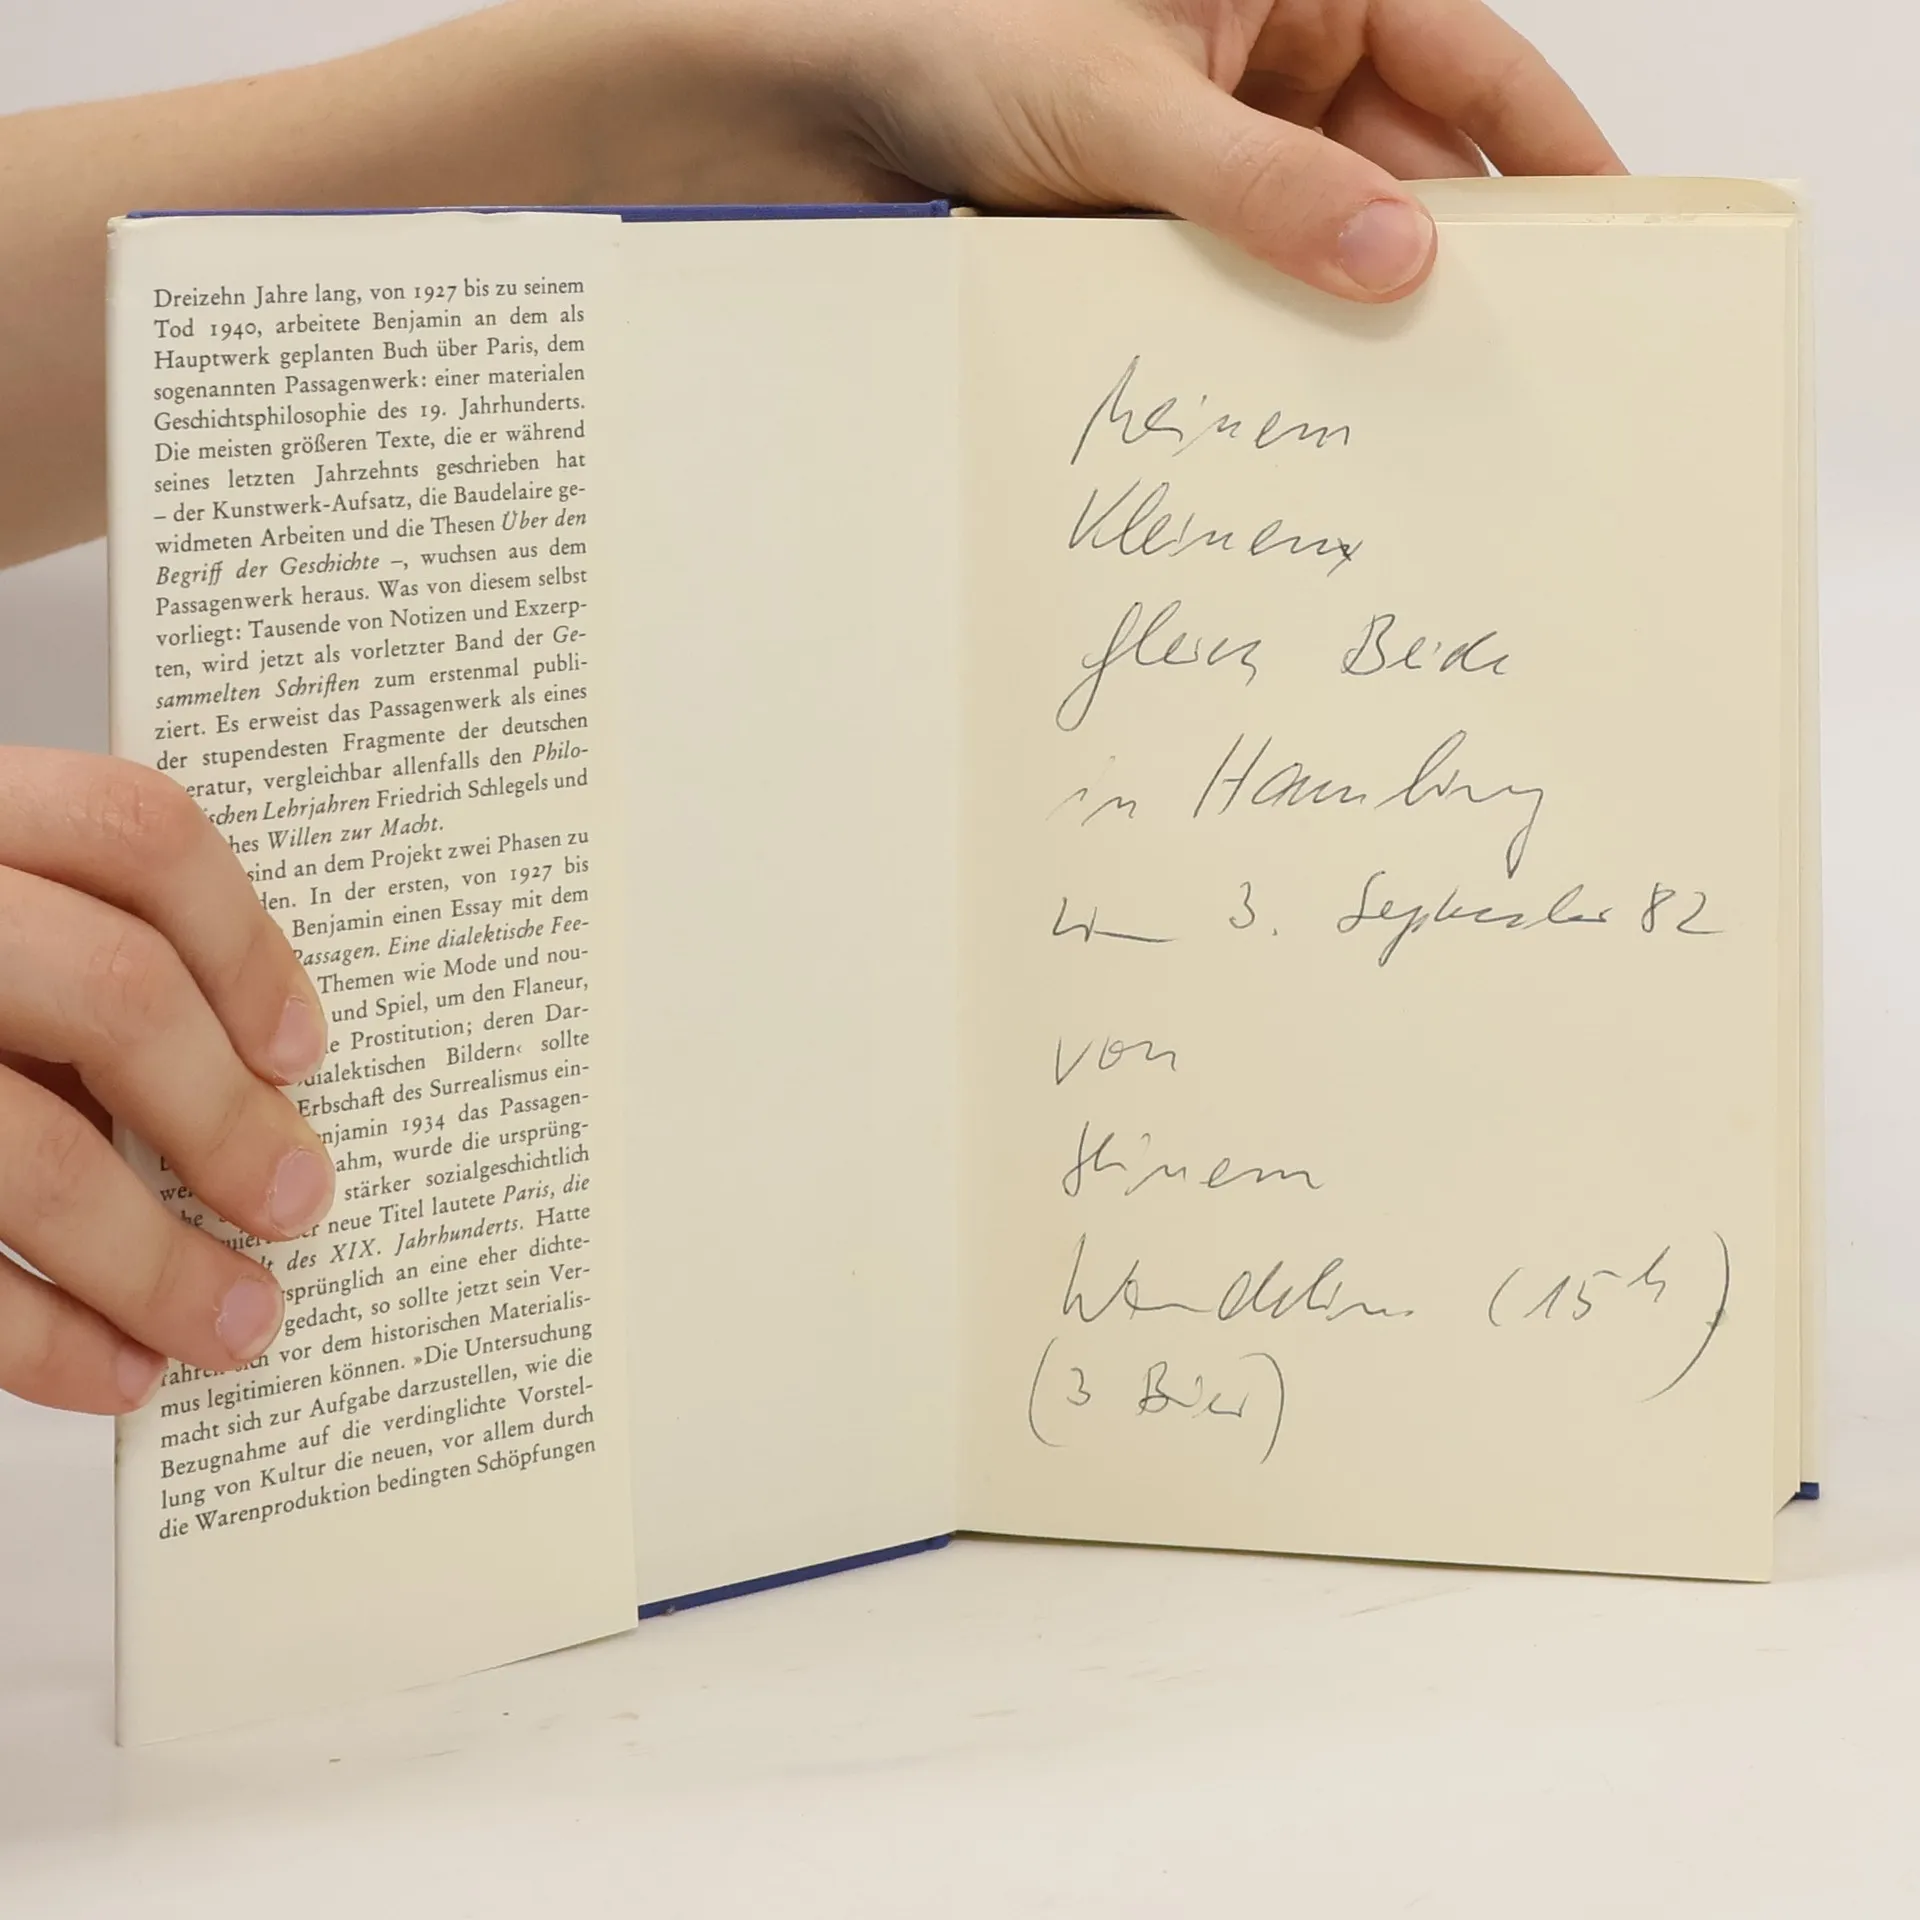 Dreizehn Jahre lang, von 1927 bis zu seinem
Tod 1940, arbeitete Benjamin an dem als
Hauptwerk geplanten Buch über Paris, dem
sogenannten Passagenwerk: einer materialen
Geschichtsphilosophie des 19. Jahrhunderts.
Die meisten größeren Texte, die er während
seines letzten Jahrzehnts geschrieben hat
– der Kunstwerk-Aufsatz, die Baudelaire ge-
widmeten Arbeiten und die Thesen Über den
Begriff der Geschichte –, wuchsen aus dem
Passagenwerk heraus. Was von diesem selbst
vorliegt: Tausende von Notizen und Exzerp-
ten, wird jetzt als vorletzter Band der Ge-
sammelten Schriften zum erstenmal publi-
ziert. Es erweist das Passagenwerk als eines
der stupendesten Fragmente der deutschen
eratur, vergleichbar allenfalls den Philo-
ischen Lehrjahren Friedrich Schlegels und
hes Willen zur Macht.
sind an dem Projekt zwei Phasen zu
den. In der ersten, von 1927 bis
Benjamin einen Essay mit dem
Passagen. Eine dialektische Fee-
Themen wie Mode und nou-
und Spiel, um den Flaneur,
ie Prostitution; deren Dar-
dialektischen Bildern‹ sollte
Erbschaft des Surrealismus ein-
njamin 1934 das Passagen-
ahm, wurde die ursprüng-
stärker sozialgeschichtlich
neue Titel lautete Paris, die
des XIX. Jahrhunderts. Hatte
sprünglich an eine eher dichte-
gedacht, so sollte jetzt sein Ver-
vor dem historischen Materialis-
mus legitimieren können. »Die Untersuchung
macht sich zur Aufgabe darzustellen, wie die
Bezugnahme auf die verdinglichte Vorstel-
lung von Kultur die neuen, vor allem durch
die Warenproduktion bedingten Schöpfungen
Meinem
Kleinen
in Hamburg
3. September 82
von
(15 h)
(3 Bier)